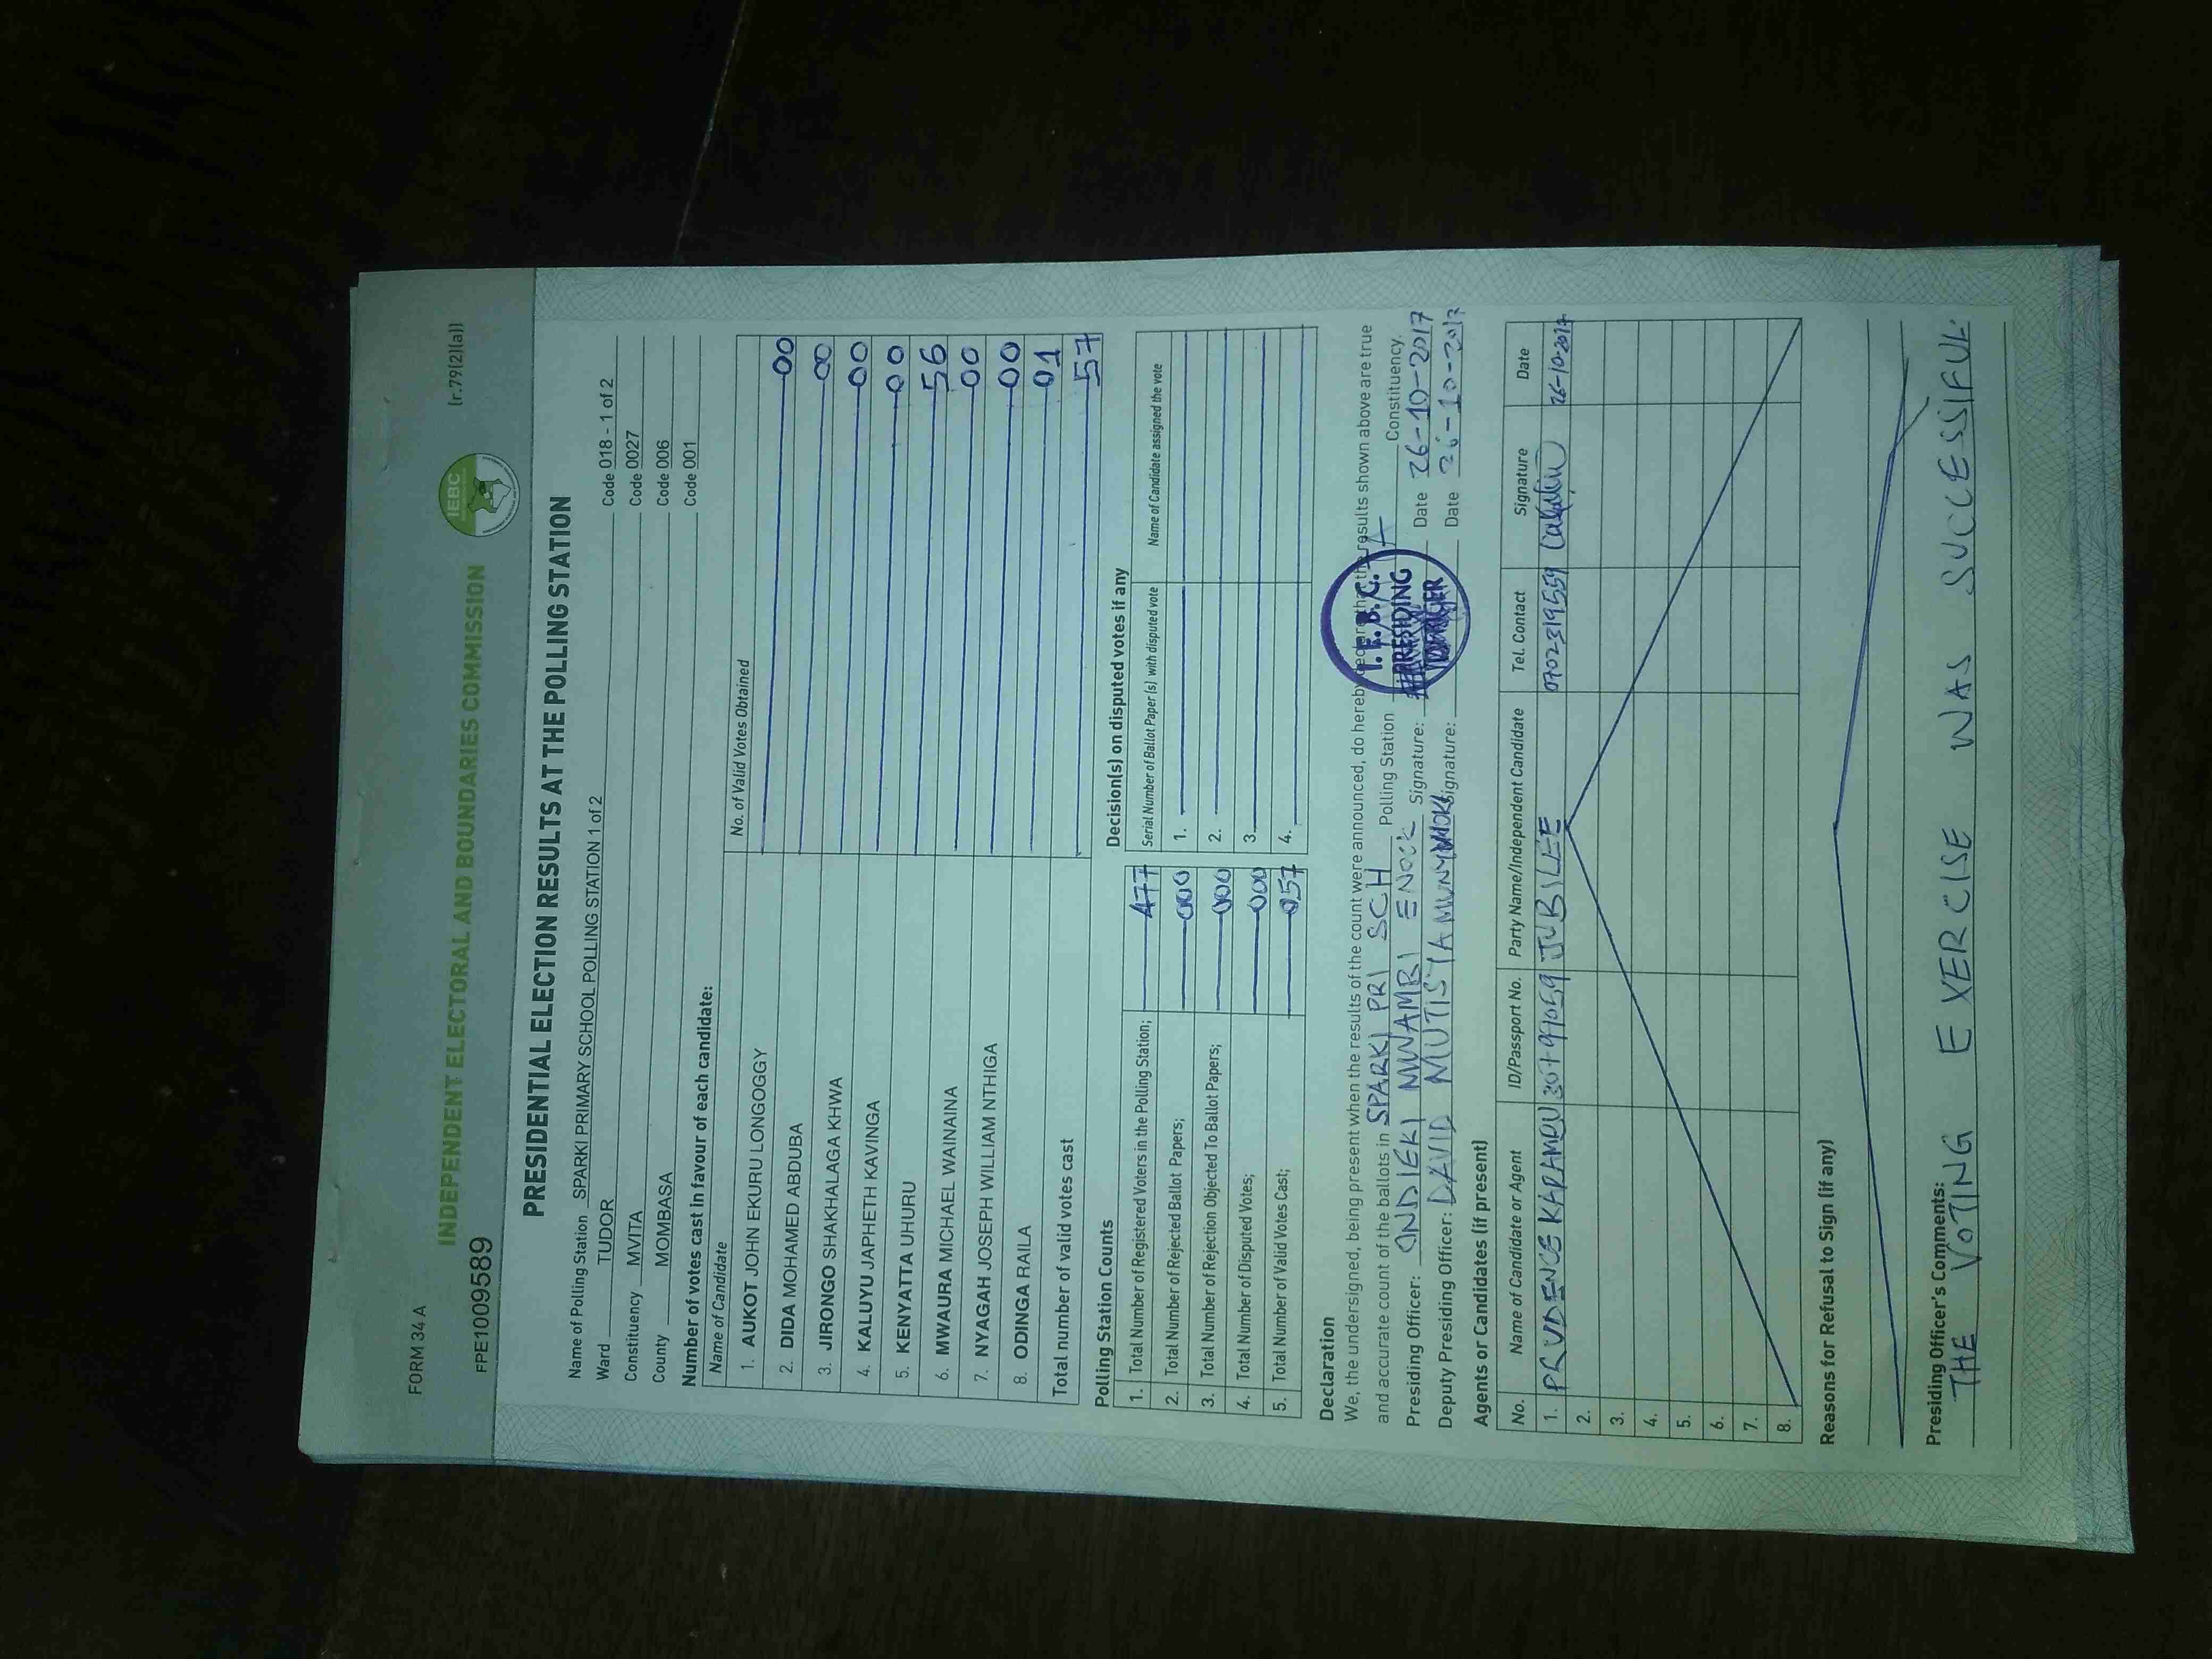 FORM 34 A
(r.79(2)(a))
INDEPENDENT ELECTORAL AND BOUNDARIES COMMISSION
IEBC
FPE1009589
PRESIDENTIAL ELECTION RESULTS AT THE POLLING STATION
Name of Polling Station SPARKI PRIMARY SCHOOL POLLING STATION 1 of 2 Code 018 - 1 of 2
Ward TUDOR Code 0027
Constituency MVITA Code 006
County MOMBASA Code 001
Number of votes cast in favour of each candidate:
Name of Candidate No. of Valid Votes Obtained
1. AUKOT JOHN EKURU LONGOGGY 00
2. DIDA MOHAMED ABDUBA 00
3. JIRONGO SHAKHALAGA KHWA 00
4. KALUYU JAPHETH KAVINGA 00
5. KENYATTA UHURU 56
6. MWAURA MICHAEL WAINAINA 00
7. NYAGAH JOSEPH WILLIAM NTHIGA 00
8. ODINGA RAILA 01
Total number of valid votes cast 57
Polling Station Counts
1. Total Number of Registered Voters in the Polling Station; 477
2. Total Number of Rejected Ballot Papers; 000
3. Total Number of Rejection Objected To Ballot Papers; 000
4. Total Number of Disputed Votes; 000
5. Total Number of Valid Votes Cast; 057
Decision(s) on disputed votes if any
Serial Number of Ballot Paper (s) with disputed vote Name of Candidate assigned the vote
1.
2.
3.
4.
Declaration
We, the undersigned, being present when the results of the count were announced, do hereby declare that the results shown above are true
and accurate count of the ballots in SPARKI PRI SCH Polling Station Constituency.
Presiding Officer: ONDIEKI NWAMBI ENOCK Signature: Date 26-10-2017
Deputy Presiding Officer: DAVID MUTISYA Signature: Date 26-10-2017
I.E.B.C.
PRESIDING
Agents or Candidates (if present)
No. Name of Candidate or Agent ID/Passport No. Party Name/Independent Candidate Tel. Contact Signature Date
1. PRUDENCE JUBILEE 0702319559 26-10-2017
2.
3.
4.
5.
6.
7.
8.
Reasons for Refusal to Sign (if any)
Presiding Officer's Comments:
THE VOTING EXERCISE WAS SUCCESSIFUL.